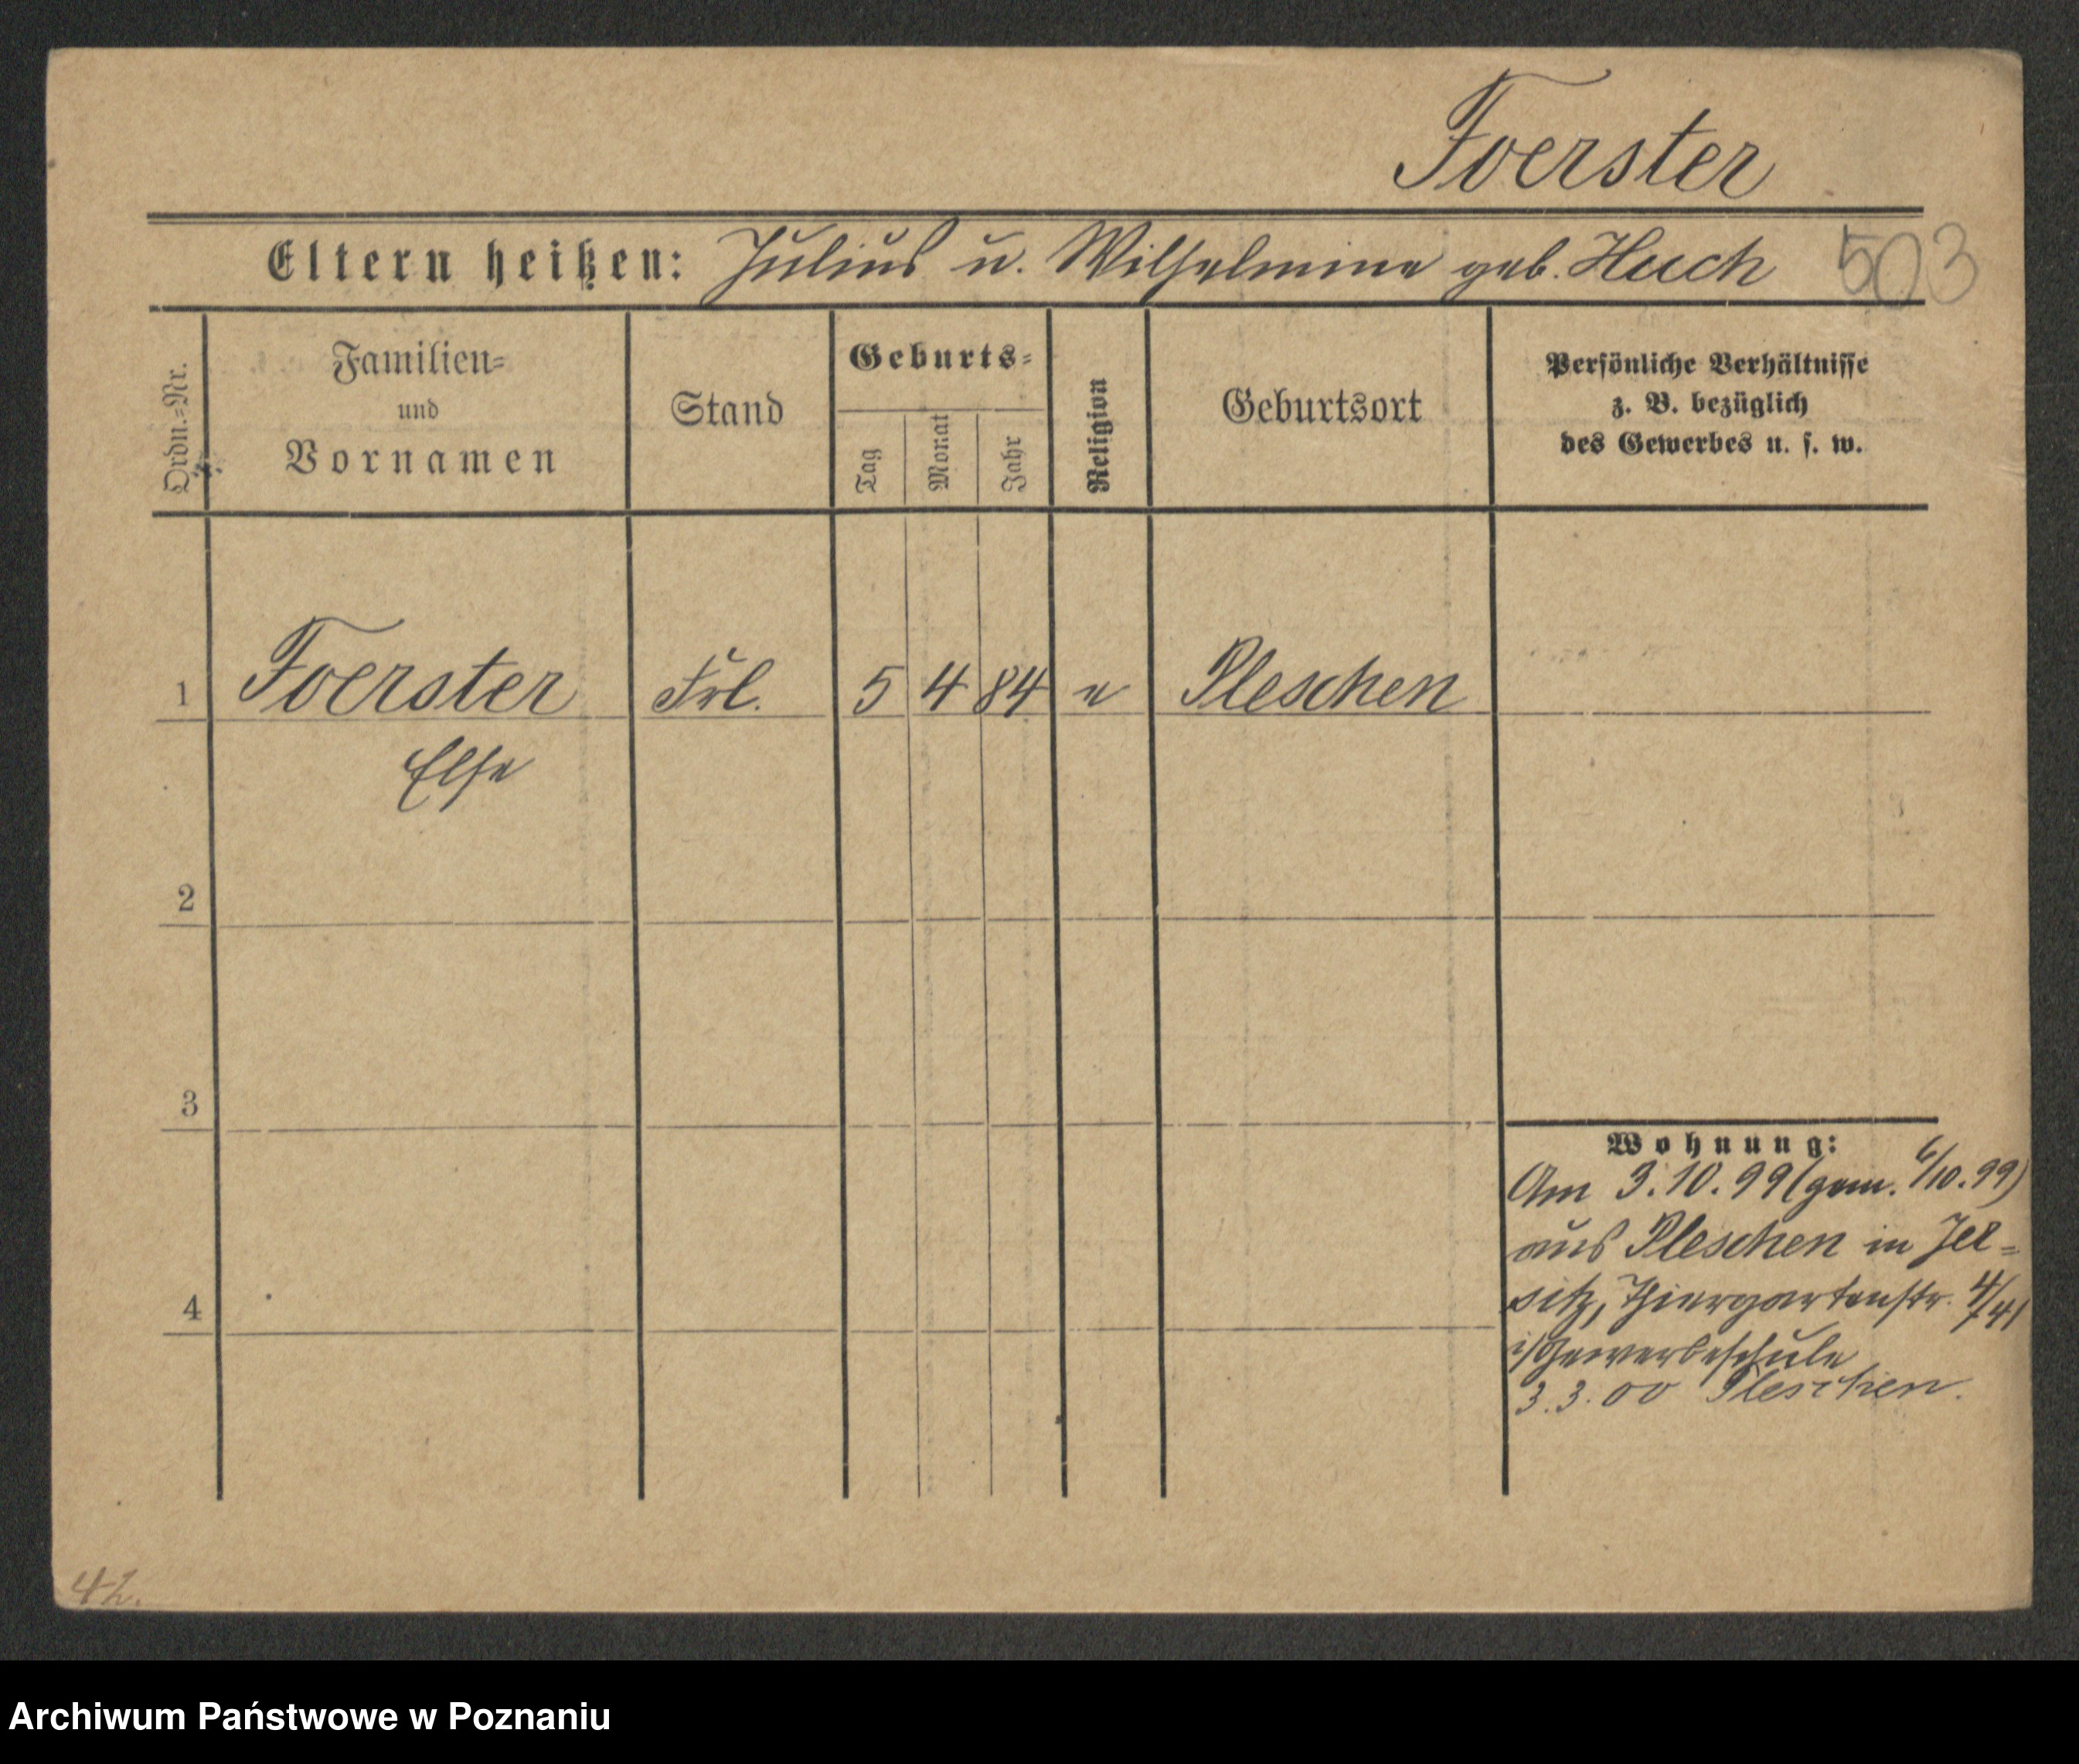 Foerster
Eltern heißen: Julius u. Wilhelmine geb. Huch 503
Ordn.=Nr.
Familien=
und
Vornamen
Stand
Geburts=
Tag
Monat
Jahr
Religion
Geburtsort
Persönliche Verhältnisse
z. B. bezüglich
des Gewerbes u. s. w.
1 Foerster Frl. 5 4 84 e Pleschen
Else
2
3
4
Wohnung:
Am 3.10.99 (gem. 6/10.99)
aus Pleschen in Jer=
sitz, Thiergartenstr. 4/41
i/Gewerbeschule
3.3.00 Pleschen.
42.
Archiwum Państwowe w Poznaniu